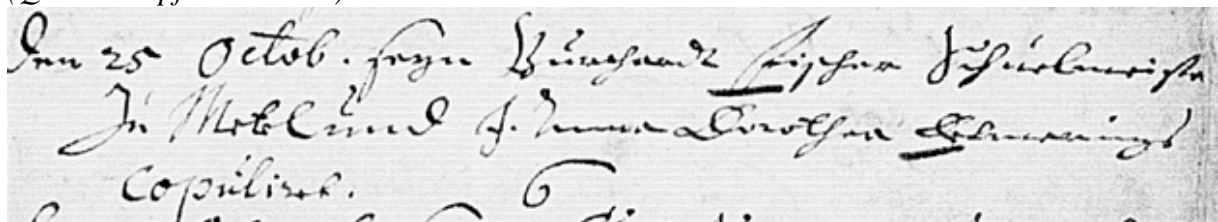 Den 25 Octob. seyn Burchardt Fischer Schuelmeister
In Mekl und J. Anna Dorothea
Copuliret. 6